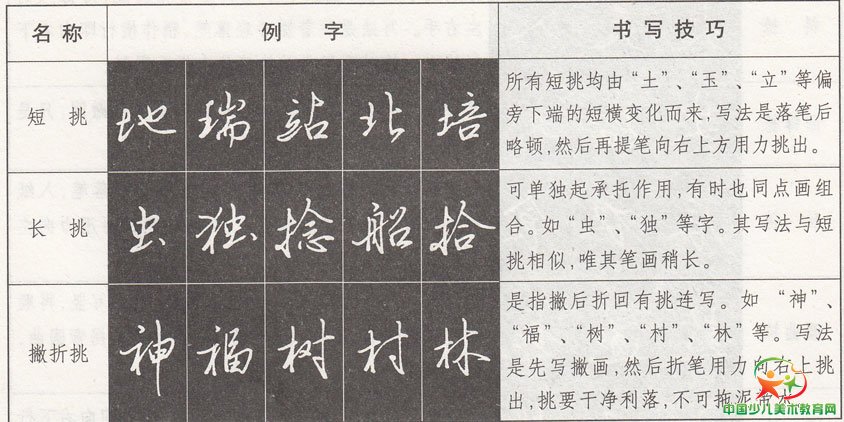 名称 例字 书写技巧
短挑 地 瑞 站 北 培
所有短挑均由“土”、“玉”、“立”等偏
旁下端的短横变化而来,写法是落笔后
略顿,然后再提笔向右上方用力挑出。
长挑 虫 独 捻 船 拾
可单独起承托作用,有时也同点画组
合。如“虫”、“独”等字。其写法与短
挑相似,唯其笔画稍长。
撇折挑 神 福 树 村 林
是指撇后折回有挑连写。如“神”、
“福”、“树”、“村”、“林”等。写法
是先写撇画,然后折笔用力向右上挑
出,挑要干净利落,不可拖泥带水。
中国少儿美术教育网